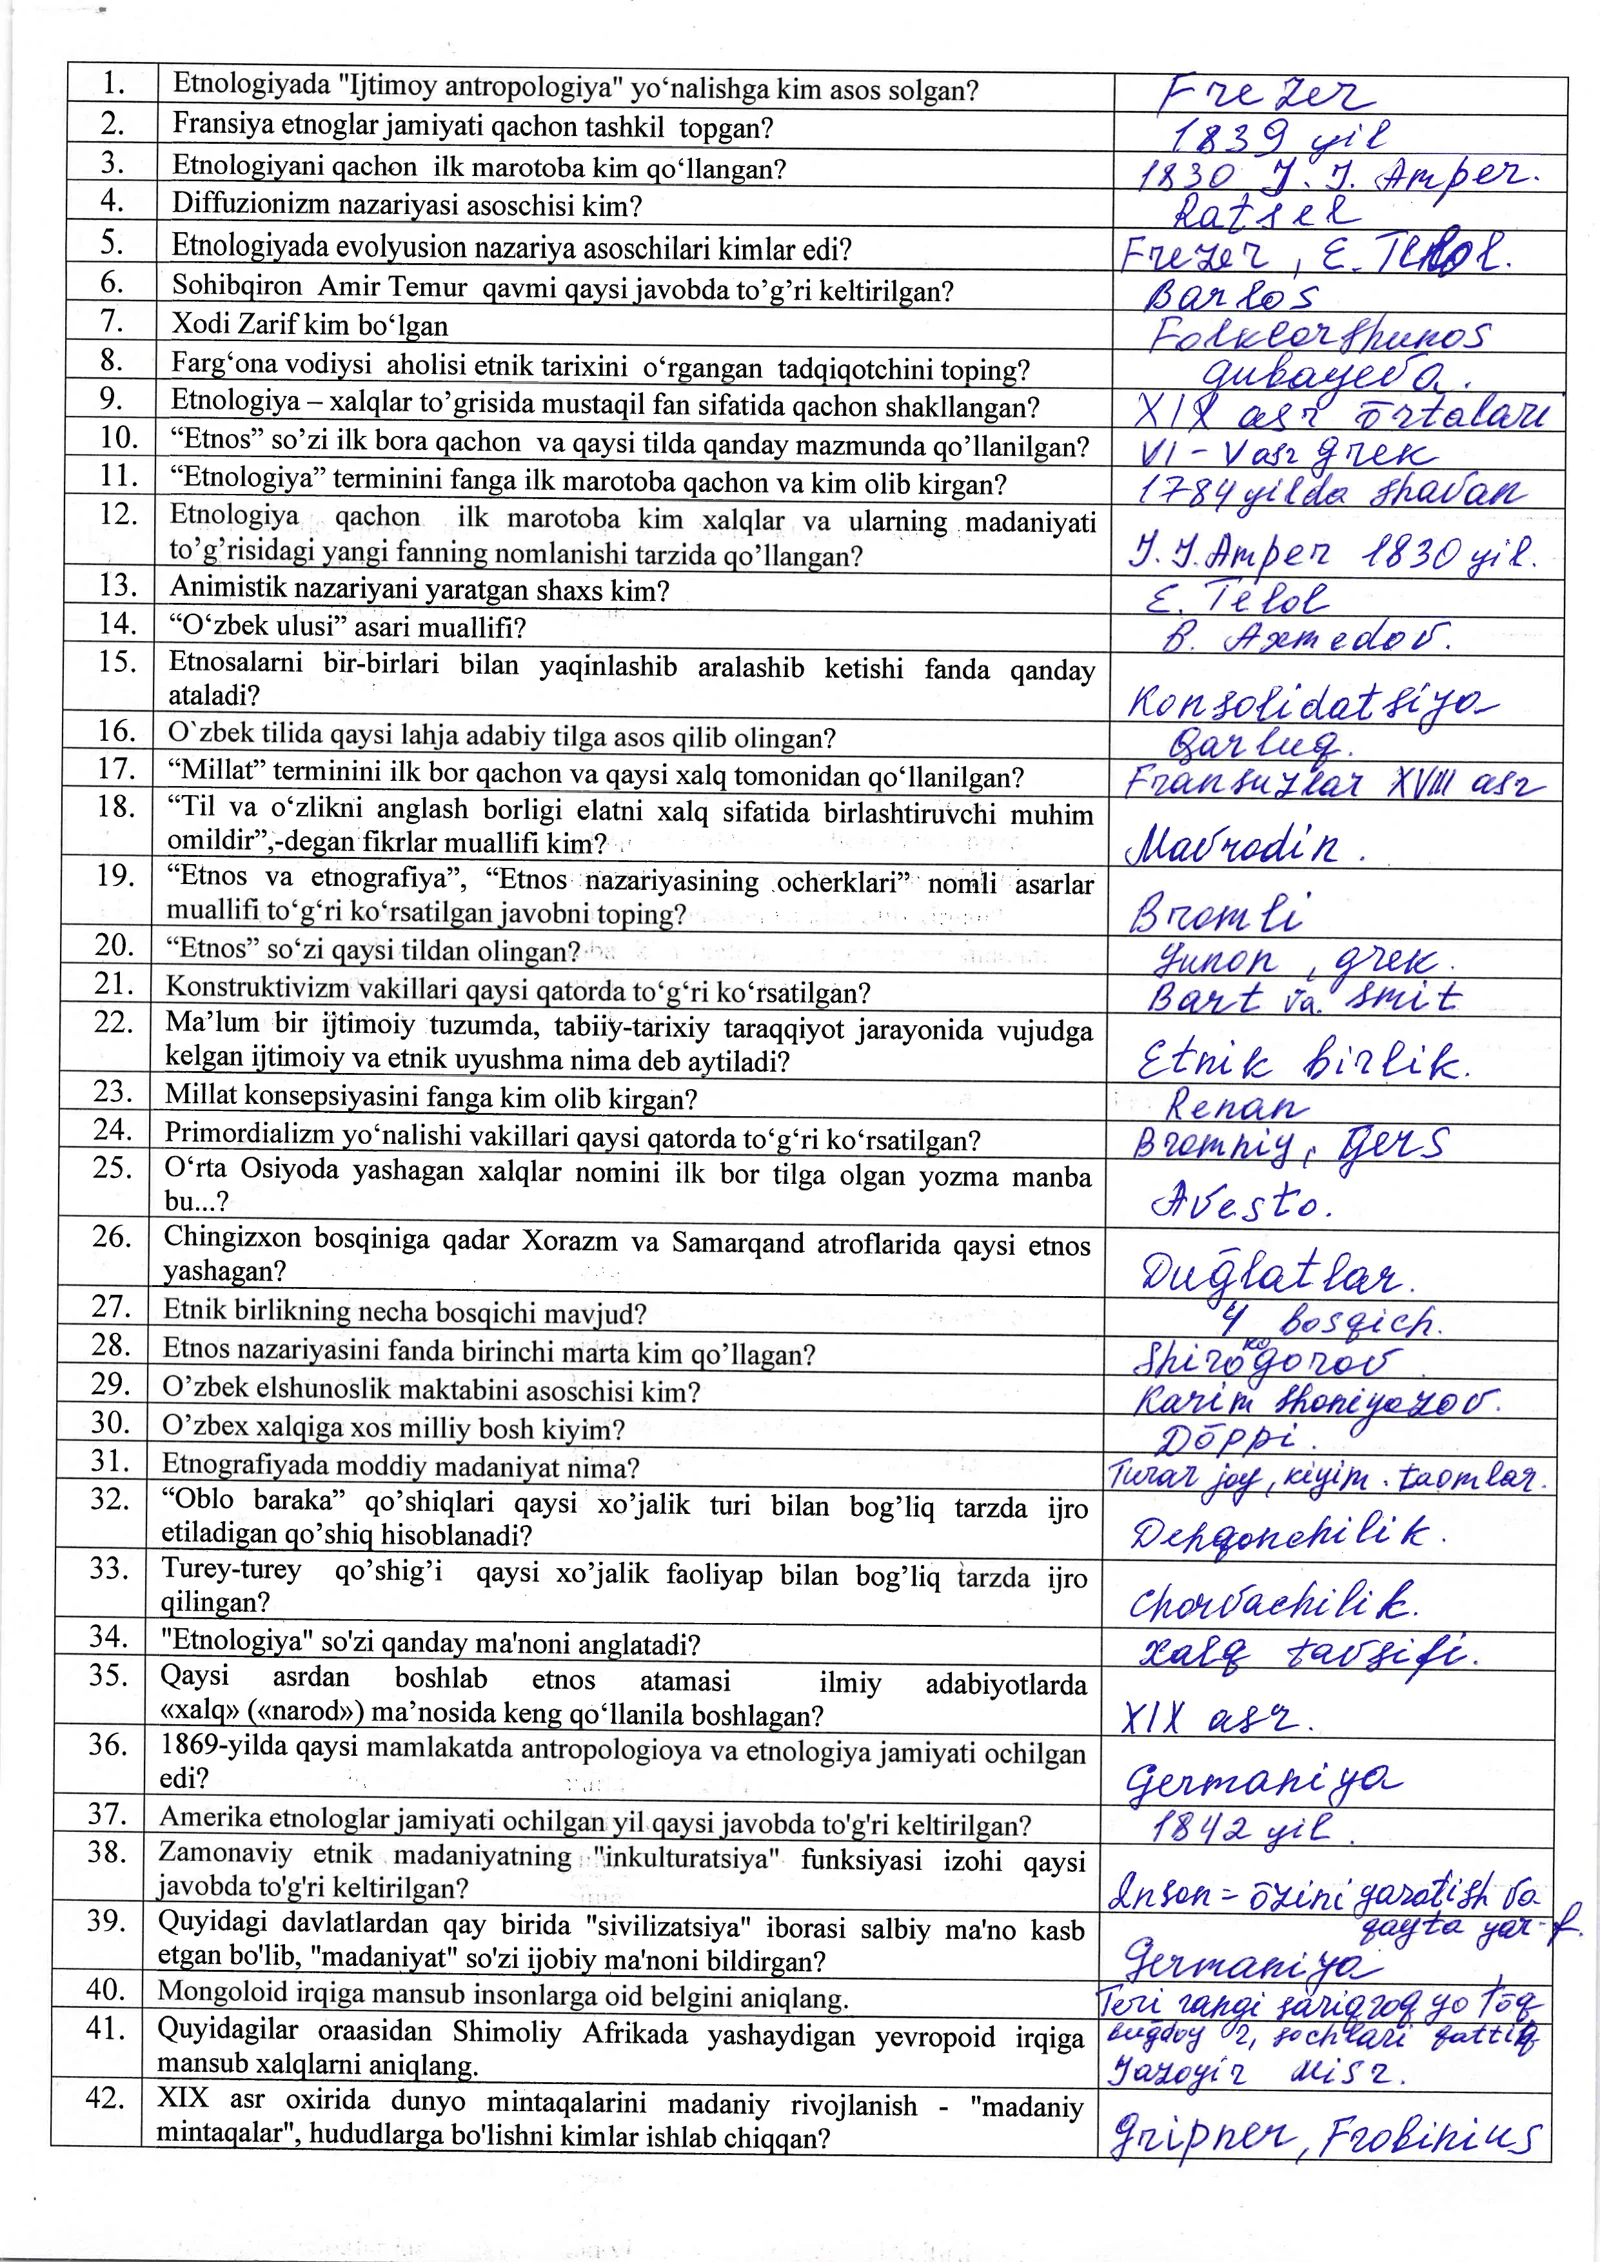 1. Etnologiyada "Ijtimoy antropologiya" yo‘nalishga kim asos solgan? Frezer
2. Fransiya etnoglar jamiyati qachon tashkil topgan? 1839 yil
3. Etnologiyani qachon ilk marotoba kim qo‘llangan? 1830 J. J. Amper.
4. Diffuzionizm nazariyasi asoschisi kim? Ratsel
5. Etnologiyada evolyusion nazariya asoschilari kimlar edi? Frezer, E.
6. Sohibqiron Amir Temur qavmi qaysi javobda to’g’ri keltirilgan? Barlos
7. Xodi Zarif kim bo‘lgan Folklorshunos
8. Farg‘ona vodiysi aholisi etnik tarixini o‘rgangan tadqiqotchini toping? Gubayeva.
9. Etnologiya – xalqlar to’grisida mustaqil fan sifatida qachon shakllangan? XIX asr ōrtalari
10. “Etnos” so’zi ilk bora qachon va qaysi tilda qanday mazmunda qo’llanilgan? VI - V asr grek
11. “Etnologiya” terminini fanga ilk marotoba qachon va kim olib kirgan? 1784 yilda shavan
12. Etnologiya qachon ilk marotoba kim xalqlar va ularning madaniyati
to’g’risidagi yangi fanning nomlanishi tarzida qo’llangan? J. J. Amper 1830 yil.
13. Animistik nazariyani yaratgan shaxs kim? E. Telol
14. “O‘zbek ulusi” asari muallifi? B. Axmedov.
15. Etnosalarni bir-birlari bilan yaqinlashib aralashib ketishi fanda qanday
ataladi? Konsolidatsiya
16. O`zbek tilida qaysi lahja adabiy tilga asos qilib olingan? Qarluq.
17. “Millat” terminini ilk bor qachon va qaysi xalq tomonidan qo‘llanilgan? Fransuzlar XVIII asr
18. “Til va o‘zlikni anglash borligi elatni xalq sifatida birlashtiruvchi muhim
omildir”,-degan fikrlar muallifi kim? Mavrodin.
19. “Etnos va etnografiya”, “Etnos nazariyasining ocherklari” nomli asarlar
muallifi to‘g‘ri ko‘rsatilgan javobni toping? Bromli
20. “Etnos” so‘zi qaysi tildan olingan? Yunon, grek.
21. Konstruktivizm vakillari qaysi qatorda to‘g‘ri ko‘rsatilgan? Bart va smit
22. Ma’lum bir ijtimoiy tuzumda, tabiiy-tarixiy taraqqiyot jarayonida vujudga
kelgan ijtimoiy va etnik uyushma nima deb aytiladi? Etnik birlik.
23. Millat konsepsiyasini fanga kim olib kirgan? Renan
24. Primordializm yo‘nalishi vakillari qaysi qatorda to‘g‘ri ko‘rsatilgan? Bromniy, Gers
25. O‘rta Osiyoda yashagan xalqlar nomini ilk bor tilga olgan yozma manba
bu...? Avesto.
26. Chingizxon bosqiniga qadar Xorazm va Samarqand atroflarida qaysi etnos
yashagan? Duḡlatlar.
27. Etnik birlikning necha bosqichi mavjud? 4 bosqich.
28. Etnos nazariyasini fanda birinchi marta kim qo’llagan? Shirokogorov
29. O’zbek elshunoslik maktabini asoschisi kim? Karim Shoniyozov.
30. O’zbex xalqiga xos milliy bosh kiyim? Dōppi.
31. Etnografiyada moddiy madaniyat nima? Turar joy, kiyim. taomlar.
32. “Oblo baraka” qo’shiqlari qaysi xo’jalik turi bilan bog’liq tarzda ijro
etiladigan qo’shiq hisoblanadi? Dehqonchilik.
33. Turey-turey qo’shig’i qaysi xo’jalik faoliyap bilan bog’liq tarzda ijro
qilingan? Chorvachilik.
34. "Etnologiya" so'zi qanday ma'noni anglatadi? xalq tavsifi.
35. Qaysi asrdan boshlab etnos atamasi ilmiy adabiyotlarda
«xalq» («narod») ma’nosida keng qo‘llanila boshlagan? XIX asr.
36. 1869-yilda qaysi mamlakatda antropologioya va etnologiya jamiyati ochilgan
edi? Germaniya
37. Amerika etnologlar jamiyati ochilgan yil qaysi javobda to'g'ri keltirilgan? 1842 yil.
38. Zamonaviy etnik madaniyatning "inkulturatsiya" funksiyasi izohi qaysi
javobda to'g'ri keltirilgan? Inson - ōzini yaratish va
qayta yar-f.
39. Quyidagi davlatlardan qay birida "sivilizatsiya" iborasi salbiy ma'no kasb
etgan bo'lib, "madaniyat" so'zi ijobiy ma'noni bildirgan? Germaniya
40. Mongoloid irqiga mansub insonlarga oid belgini aniqlang. Teri rangi sariqroq yo tōq
buḡdoy r, sochlari qattiq
41. Quyidagilar oraasidan Shimoliy Afrikada yashaydigan yevropoid irqiga
mansub xalqlarni aniqlang. Jazoyir Misr.
42. XIX asr oxirida dunyo mintaqalarini madaniy rivojlanish - "madaniy
mintaqalar", hududlarga bo'lishni kimlar ishlab chiqqan? Gripner, Frobinius